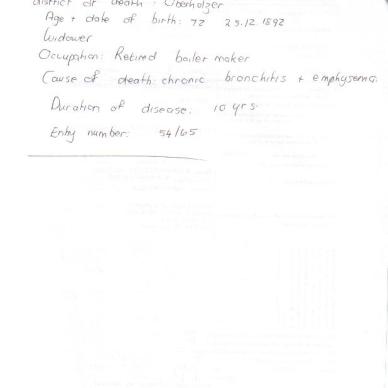 District of death: Oberholzer
Age + date of birth: 72 25.12.1892
Widower
Occupation: Retired boiler maker
Cause of death: chronic bronchitis + emphysema
Duration of disease: 10 yrs.
Entry number: 54/65